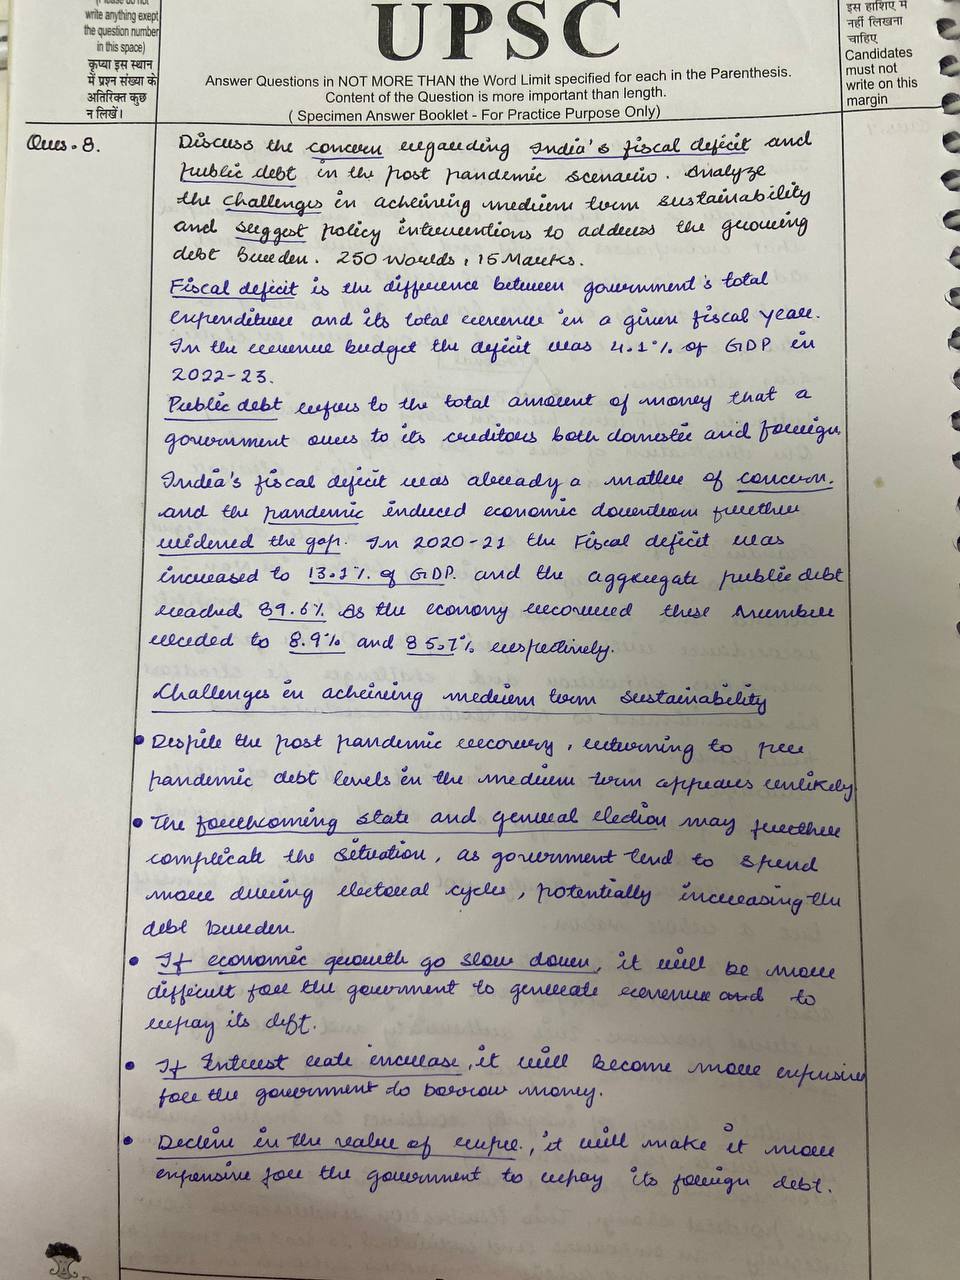 write anything exept
the question number
in this space)
कृप्या इस स्थान
में प्रश्न संख्या के
अतिरिक्त कुछ
न लिखें।
UPSC
Answer Questions in NOT MORE THAN the Word Limit specified for each in the Parenthesis.
Content of the Question is more important than length.
( Specimen Answer Booklet - For Practice Purpose Only)
इस हाशिए में
नहीं लिखना
चाहिए
Candidates
must not
write on this
margin
Ques. 8.
Discuss the concern regarding India's fiscal deficit and
public debt in the post pandemic scenario. Analyze
the challenges in acheining medium term sustainability
and suggest policy interventions to address the growing
debt burden. 250 Words, 15 Marks.
Fiscal deficit is the difference between government's total
expenditure and its total revenue in a given fiscal year.
In the revenue budget the deficit was 4.1% of GDP in
2022-23.
Public debt refers to the total amount of money that a
government owes to its creditors both domestic and foreign.
India's fiscal deficit was already a matter of concern.
and the pandemic induced economic downturn further
widened the gap. In 2020-21 the Fiscal deficit was
increased to 13.1% of GDP. and the aggregate public debt
reached 89.6% As the economy recovered these number
receded to 8.9% and 85.7% respectively.
Challenges in acheining medium term sustainability
• Despite the post pandemic recovery, returning to pre
pandemic debt levels in the medium term appears unlikely
• The forthcoming state and general election may further
complicate the situation, as government tend to spend
more during electoral cycles, potentially increasing the
debt burden
• If economic growth go slow down, it will be more
difficult for the government to generate revenue and to
repay its deft.
• If Interest rate increase, it will become more expensive
for the government to borrow money.
• Decline in the value of rupee, it will make it more
expensive for the government to repay its foreign debt.